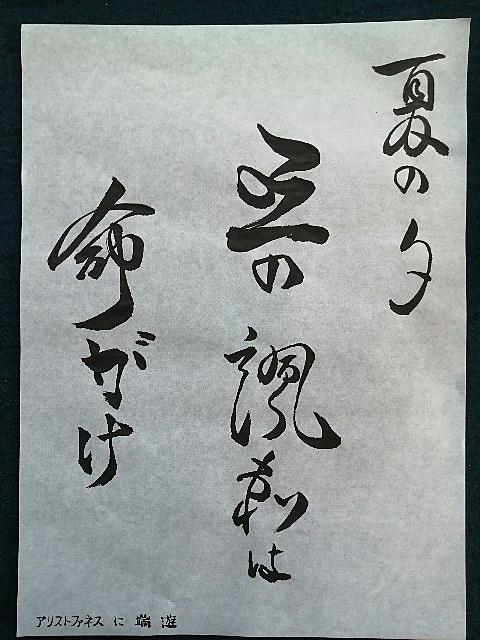 夏の夕
真の諷刺は
命がけ
アリストファネス に 端遊